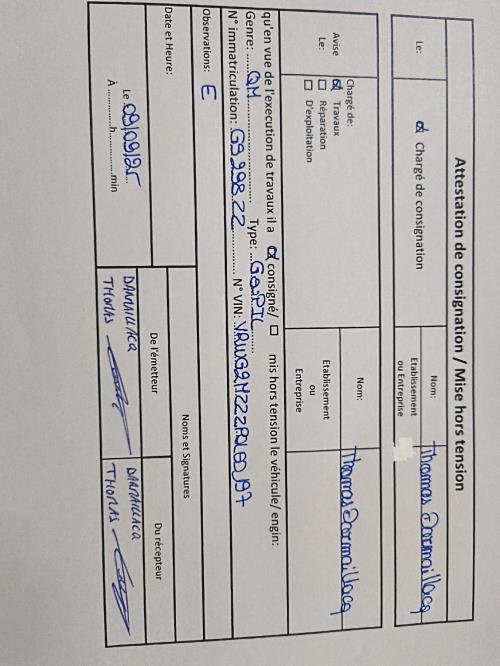 Attestation de consignation / Mise hors tension
Le:
Chargé de consignation
Nom: Thomas Darmaillacq
Etablissement
ou Entreprise
Avise
Le:
Chargé de:
Travaux
Réparation
D'exploitation
Nom: Thomas Darmaillacq
Etablissement
ou
Entreprise
qu'en vue de l'execution de travaux il a consigné/ mis hors tension le véhicule/ engin:
Genre: Type:
N° immatriculation: GS 298 ZZ N° VIN:
Observations: E
Date et Heure:
Noms et Signatures
De l'émetteur
Du récepteur
Le 09/09/25
À ............h............min
DARMAILLACQ
THOMAS
DARMAILLACQ
THOMAS